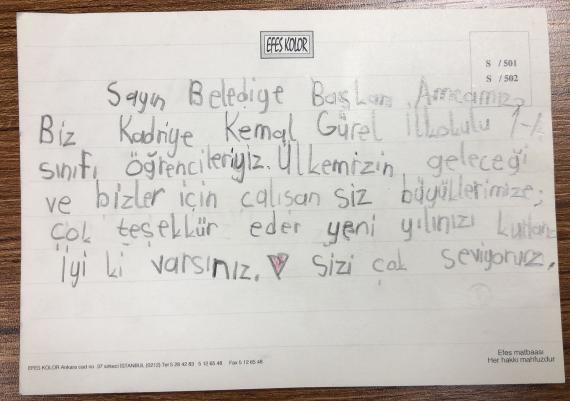 EFES KOLOR
S / 501
S / 502
Sayın Belediye Başkan Amcamız,
Biz Kadriye Kemal Gürel İlkokulu 1-A
sınıfı öğrencileriyiz. Ülkemizin geleceği
ve bizler için çalışan siz büyüklerimize;
çok teşekkür eder yeni yılınızı kutlarız
İyi ki varsınız. Sizi çok seviyoruz.
EFES KOLOR Ankara cad no 37 sirkeci İSTANBUL (0212) Tel 5 28 42 83 5 12 65 48 Fax 5 12 65 48
Efes matbaası
Her hakkı mahfuzdur